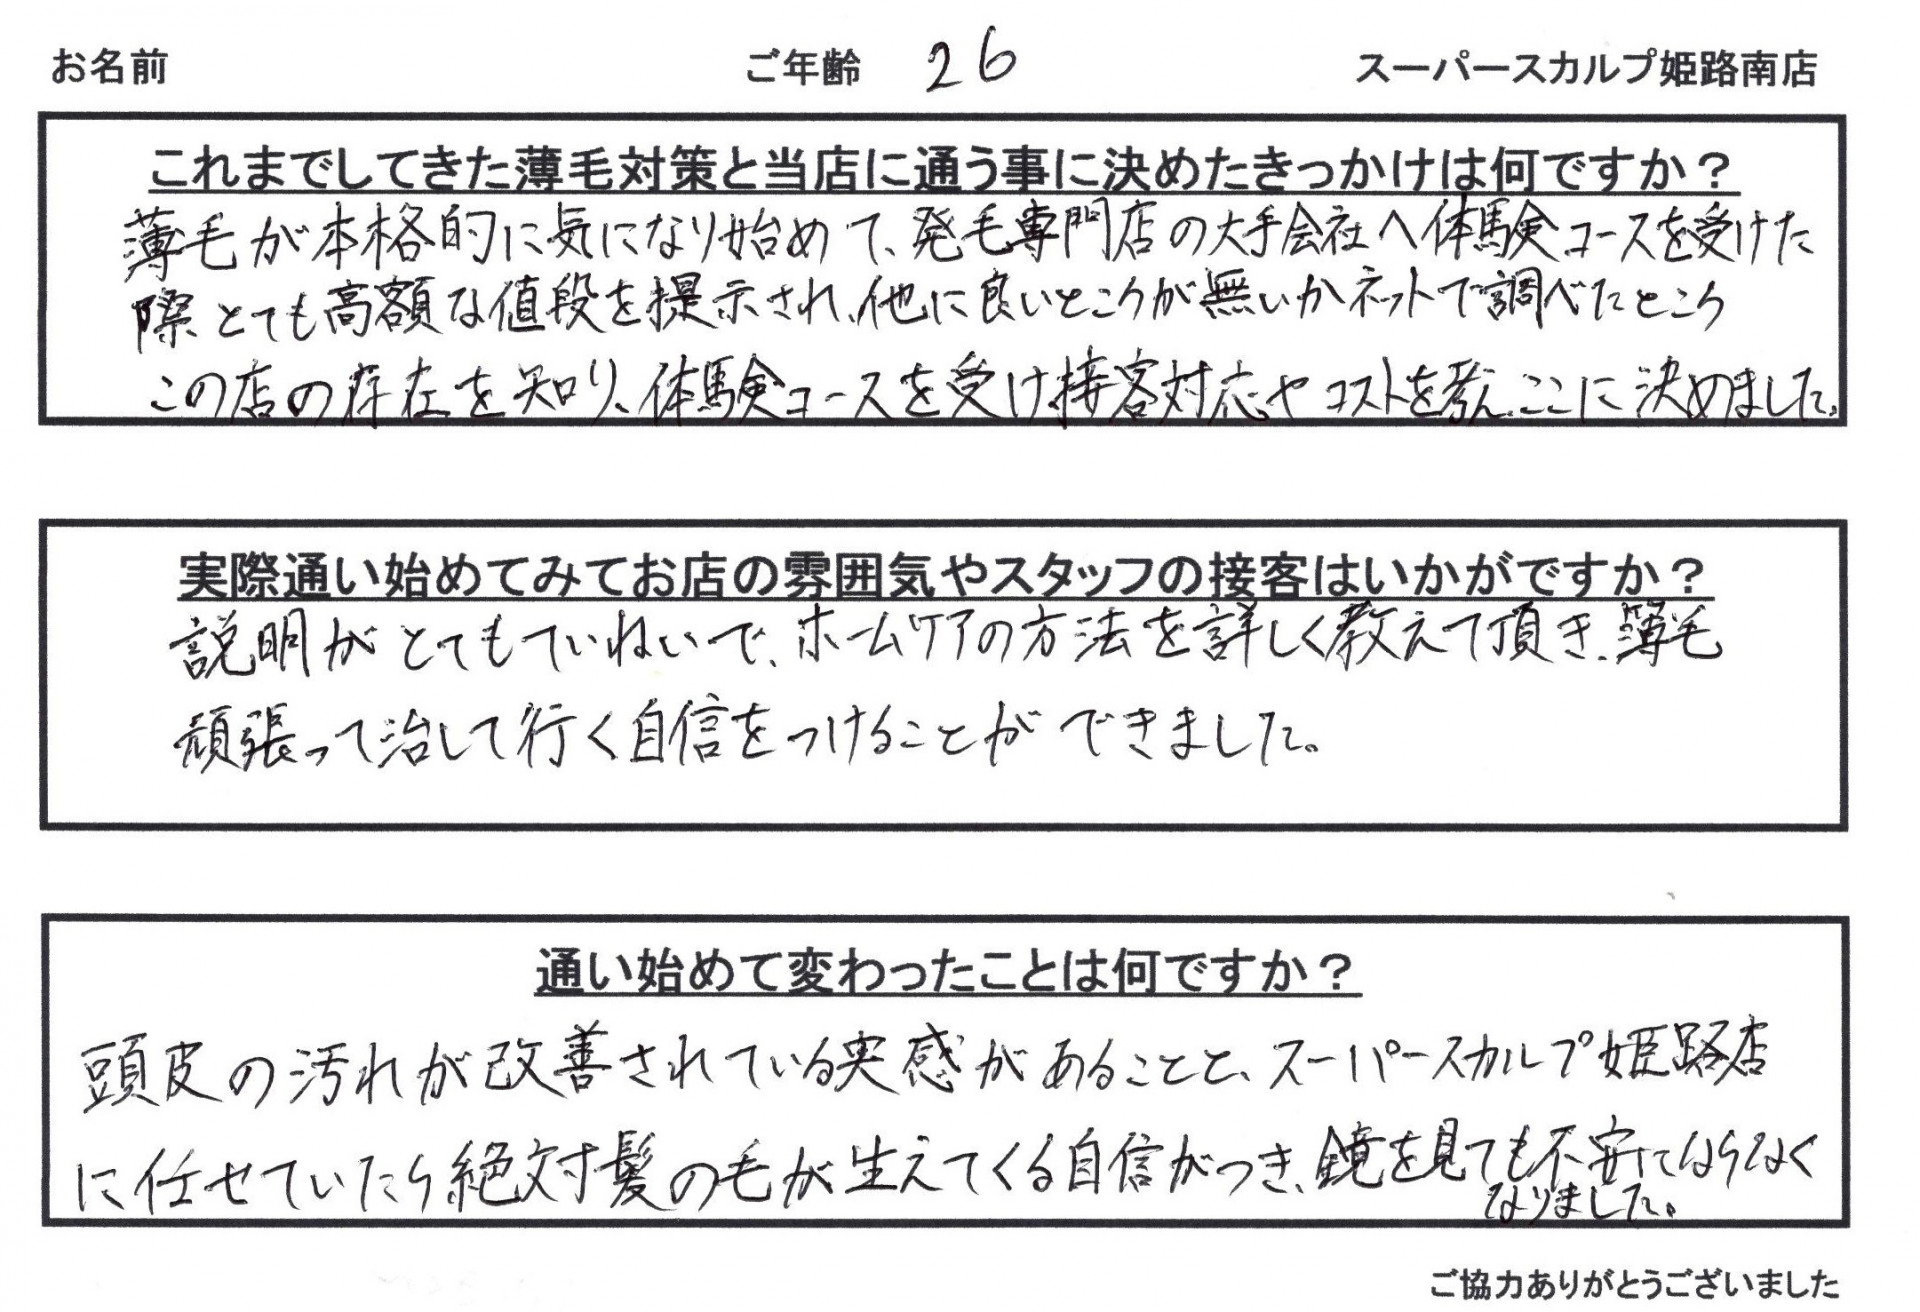 お名前 ご年齢 26 スーパースカルプ姫路南店
これまでしてきた薄毛対策と当店に通う事に決めたきっかけは何ですか？
薄毛が本格的に気になり始めて、発毛専門店の大手会社へ体験コースを受けた
際とても高額な値段を提示され、他に良いところが無いかネットで調べたところ
この店の存在を知り、体験コースを受け接客対応やコストを考え、ここに決めました。
実際通い始めてみてお店の雰囲気やスタッフの接客はいかがですか？
説明がとてもていねいで、ホームケアの方法を詳しく教えて頂き、薄毛
頑張って治して行く自信をつけることができました。
通い始めて変わったことは何ですか？
頭皮の汚れが改善されている実感があることと、スーパースカルプ姫路店
に任せていたら絶対髪の毛が生えてくる自信がつき、鏡を見ても不安にならなく
なりました。
ご協力ありがとうございました